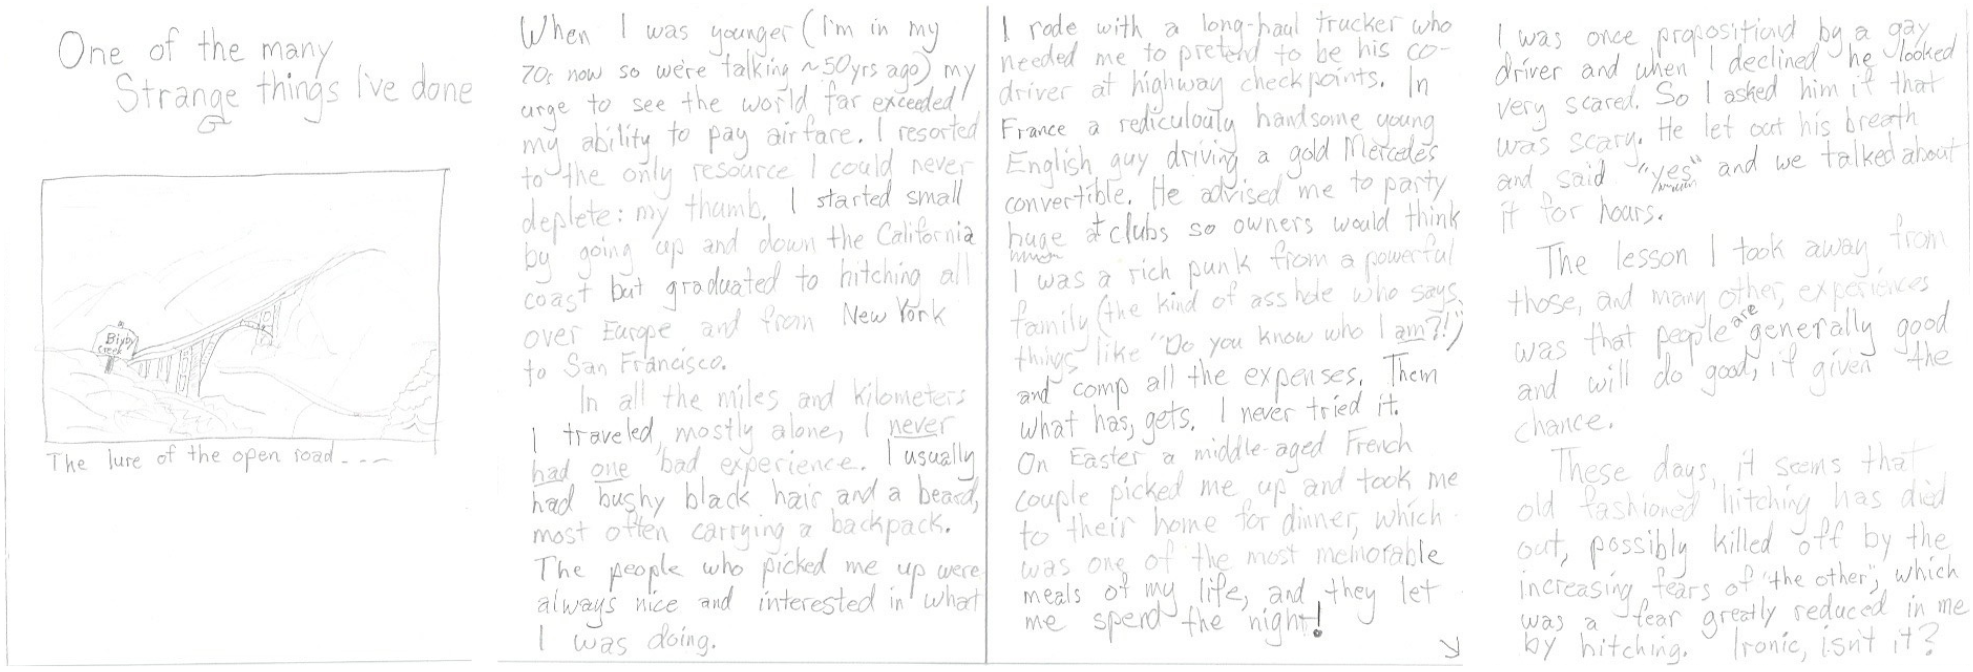 One of the many
Strange things I've done
Bixby
Creek
The lure of the open road----
When I was younger (I'm in my
70s now so we're talking ~50yrs ago) my
urge to see the world far exceeded
my ability to pay airfare. I resorted
to the only resource I could never
deplete: my thumb. I started small
by going up and down the California
coast but graduated to hitching all
over Europe and from New York
to San Francisco.
In all the miles and kilometers
I traveled, mostly alone, I never
had one bad experience. I usually
had bushy black hair and a beard,
most often carrying a backpack.
The people who picked me up were
always nice and interested in what
I was doing.
I rode with a long-haul trucker who
needed me to pretend to be his co-
driver at highway checkpoints. In
France a rediculouly handsome young
English guy driving a gold Mercedes
convertible. He advised me to party
huge at clubs so owners would think
I was a rich punk from a powerful
family (the kind of asshole who says
things like "Do you know who I am?!")
and comp all the expenses. Them
what has, gets. I never tried it.
On Easter a middle-aged French
couple picked me up and took me
to their home for dinner, which
was one of the most memorable
meals of my life, and they let
me spend the night!
I was once propositiond by a gay
driver and when I declined he looked
very scared. So I asked him if that
was scary. He let out his breath
and said "yes" and we talked about
it for hours.
The lesson I took away from
those, and many other, experiences
was that people are generally good
and will do good, if given the
chance.
These days, it seems that
old fashioned hitching has died
out, possibly killed off by the
increasing fears of "the other", which
was a fear greatly reduced in me
by hitching. Ironic, isn't it?